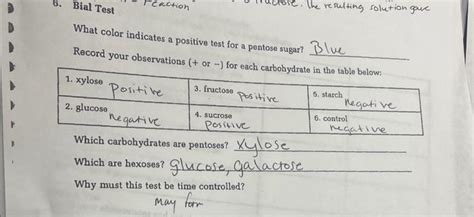 reaction
fructose. The resulting solution gave
6. Bial Test
What color indicates a positive test for a pentose sugar? Blue
Record your observations (+ or –) for each carbohydrate in the table below:
1. xylose Positive 3. fructose positive 5. starch negative
2. glucose negative 4. sucrose positive 6. control negative
Which carbohydrates are pentoses? xylose
Which are hexoses? glucose, galactose
Why must this test be time controlled?
may form